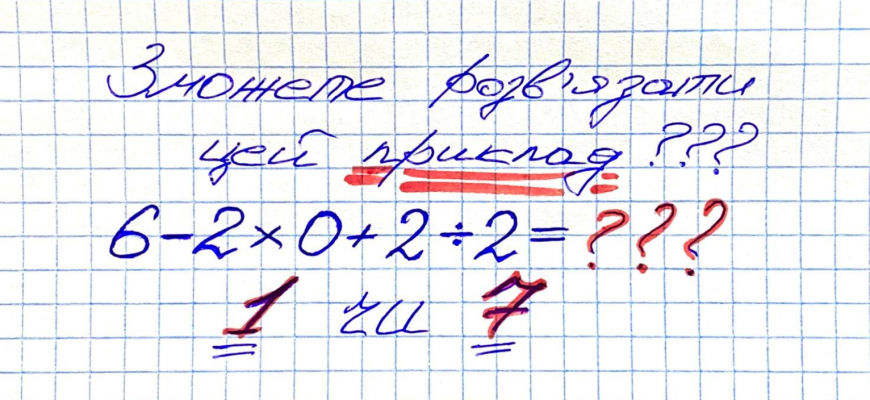 Зможете розв'язати
цей приклад ???
6-2×0+2÷2=???
1 чи 7